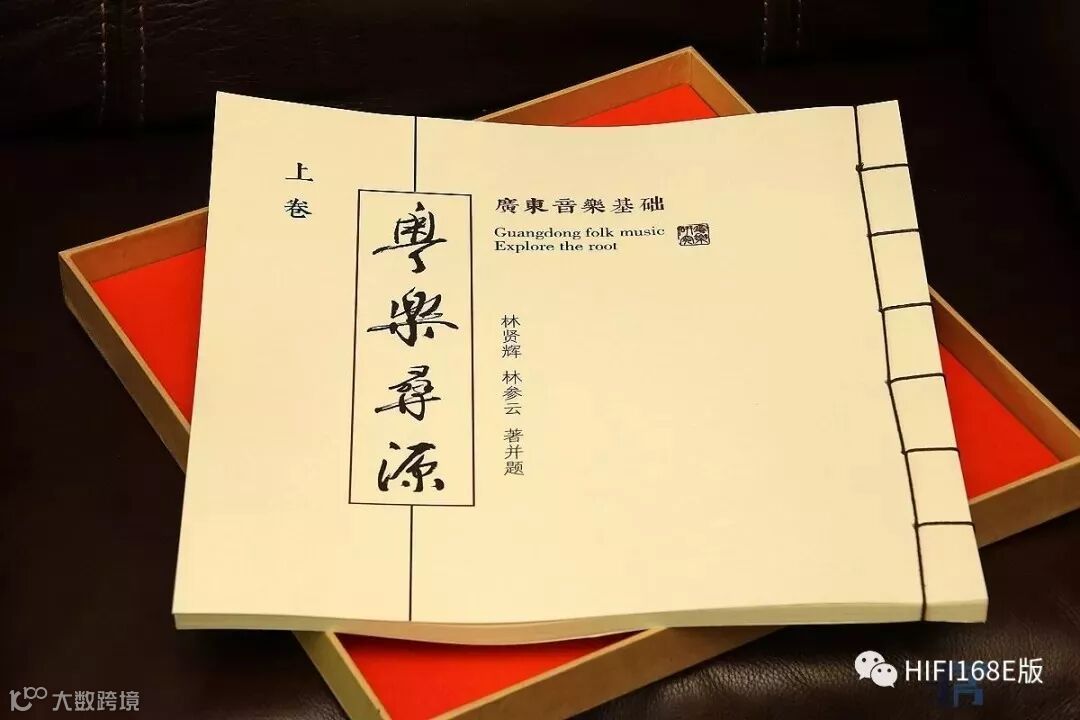 上卷
粤樂尋源
廣東音樂基础
Guangdong folk music
Explore the root
林贤辉 林参云 著并题
HIFI168E版
大数跨境